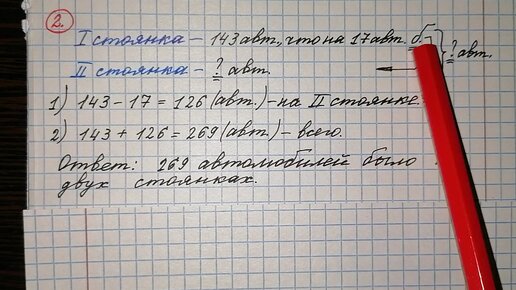 2.
I стоянка – 143 авт., что на 17 авт. б-
II стоянка – ? авт.
? авт.
1) 143 – 17 = 126 (авт.) – на II стоянке.
2) 143 + 126 = 269 (авт.) – всего.
Ответ: 269 автомобилей было
двух стоянках.